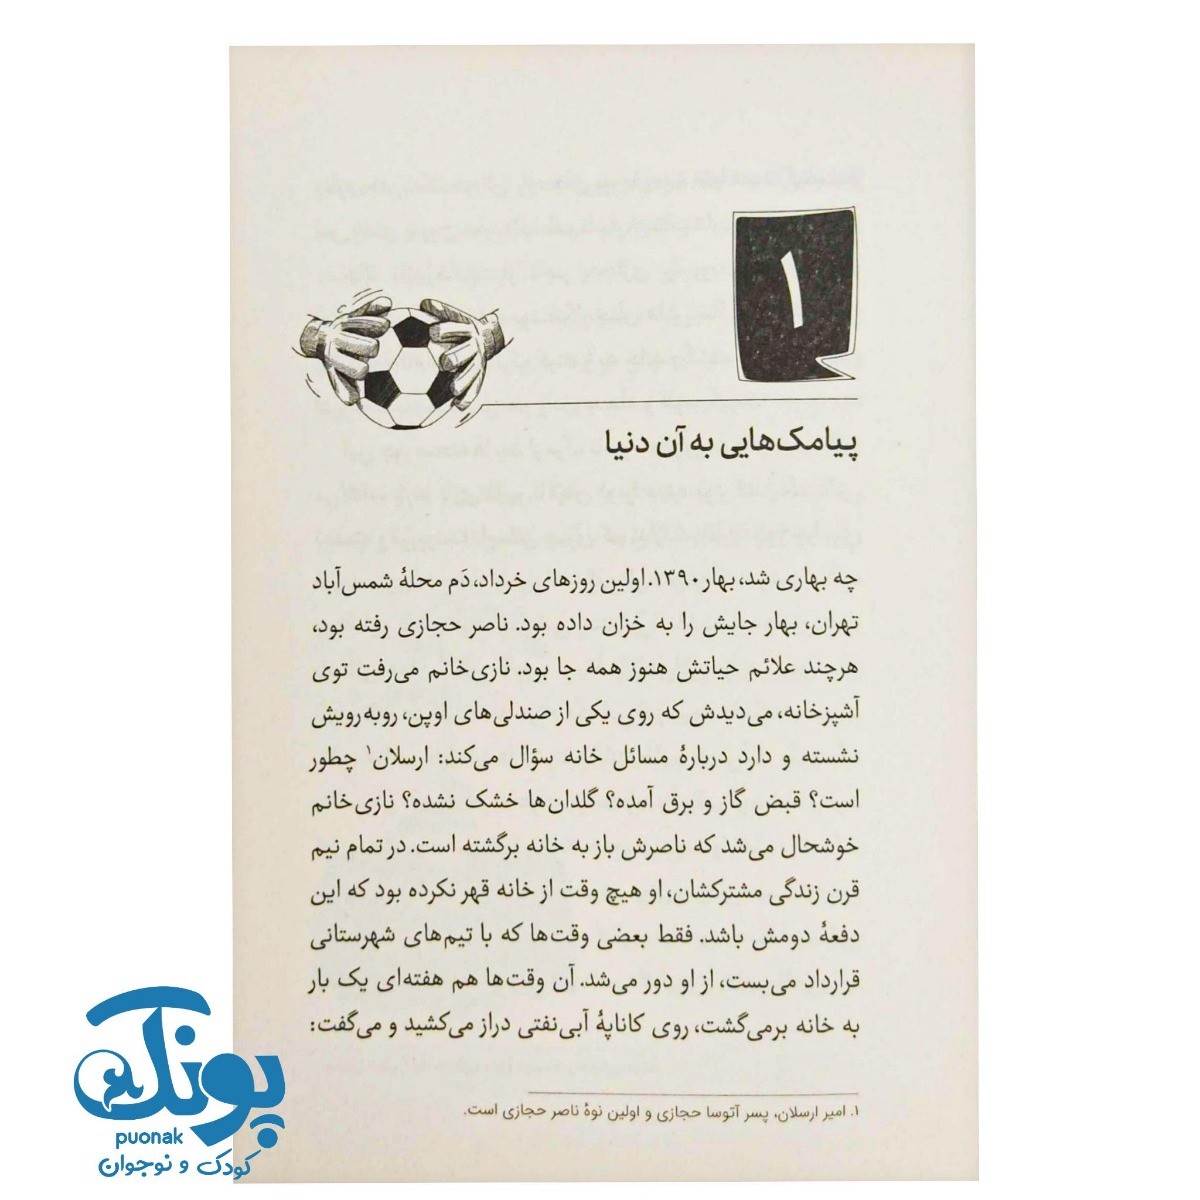 ۱
پیامک‌هایی به آن دنیا
چه بهاری شد، بهار ۱۳۹۰. اولین روزهای خرداد، دَم محلهٔ شمس‌آباد
تهران، بهار جایش را به خزان داده بود. ناصر حجازی رفته بود،
هرچند علائم حیاتش هنوز همه جا بود. نازی‌خانم می‌رفت توی
آشپزخانه، می‌دیدش که روی یکی از صندلی‌های اوپن، روبه‌رویش
نشسته و دارد دربارهٔ مسائل خانه سؤال می‌کند: ارسلان۱ چطور
است؟ قبض گاز و برق آمده؟ گلدان‌ها خشک نشده؟ نازی‌خانم
خوشحال می‌شد که ناصرش باز به خانه برگشته است. در تمام نیم
قرن زندگی مشترکشان، او هیچ وقت از خانه قهر نکرده بود که این
دفعهٔ دومش باشد. فقط بعضی وقت‌ها که با تیم‌های شهرستانی
قرارداد می‌بست، از او دور می‌شد. آن وقت‌ها هم هفته‌ای یک بار
به خانه برمی‌گشت، روی کاناپهٔ آبی‌نفتی دراز می‌کشید و می‌گفت:
۱. امیر ارسلان، پسر آتوسا حجازی و اولین نوهٔ ناصر حجازی است.
پونک
puonak
کودک و نوجوان